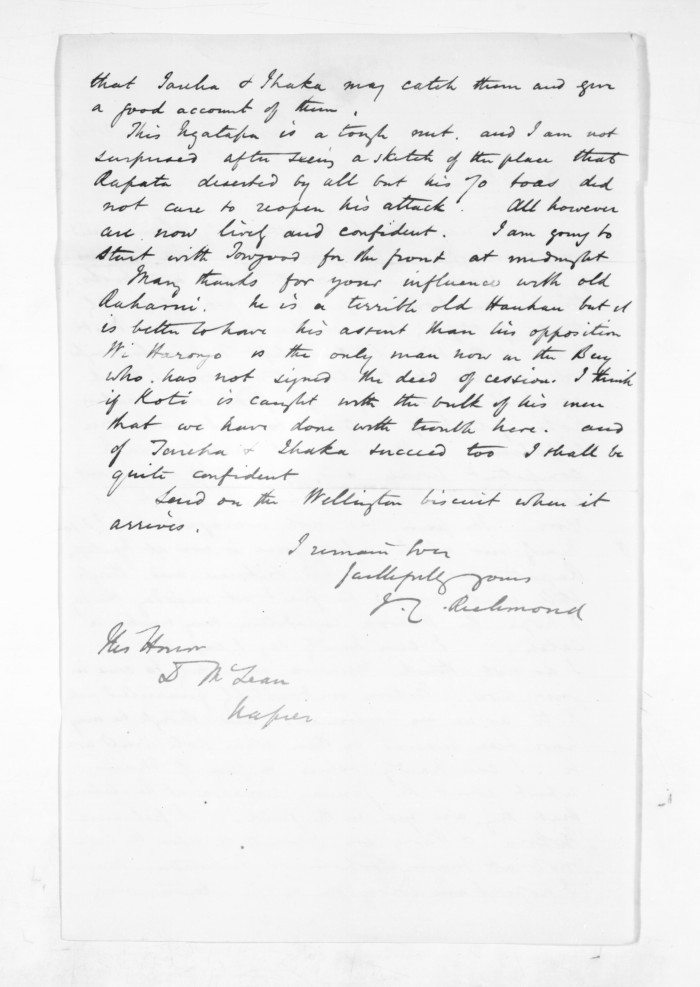 that Tareha & Ihaka may catch them and give
a good account of them.
This Ngatapa is a tough nut. and I am not
surprised after seeing a sketch of the place that
Rapata deserted by all but his 70 toas did
not care to reopen his attack. All however
are now lively and confident. I am going to
start with Towgood for the front at midnight
Many thanks for your influence with old
he is a terrible old Hauhau but it
is better to have his assent than his opposition
Wi Haronga is the only man now in the Bay
who has not signed the deed of cession. I think
if Koti is caught with the bulk of his men
that we have done with trouble here. and
if Tareha & Ihaka succeed too I shall be
quite confident
Send on the Wellington biscuit when it
arrives.
I remain Ever
faithfully yours
J. C. Richmond
His Honor
D McLean
Napier